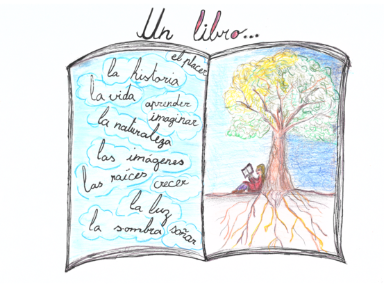 Un libro...
el placer
la historia
la vida aprender
imaginar
la naturaleza
las imágenes
las raíces crecer
la luz
la sombra soñar